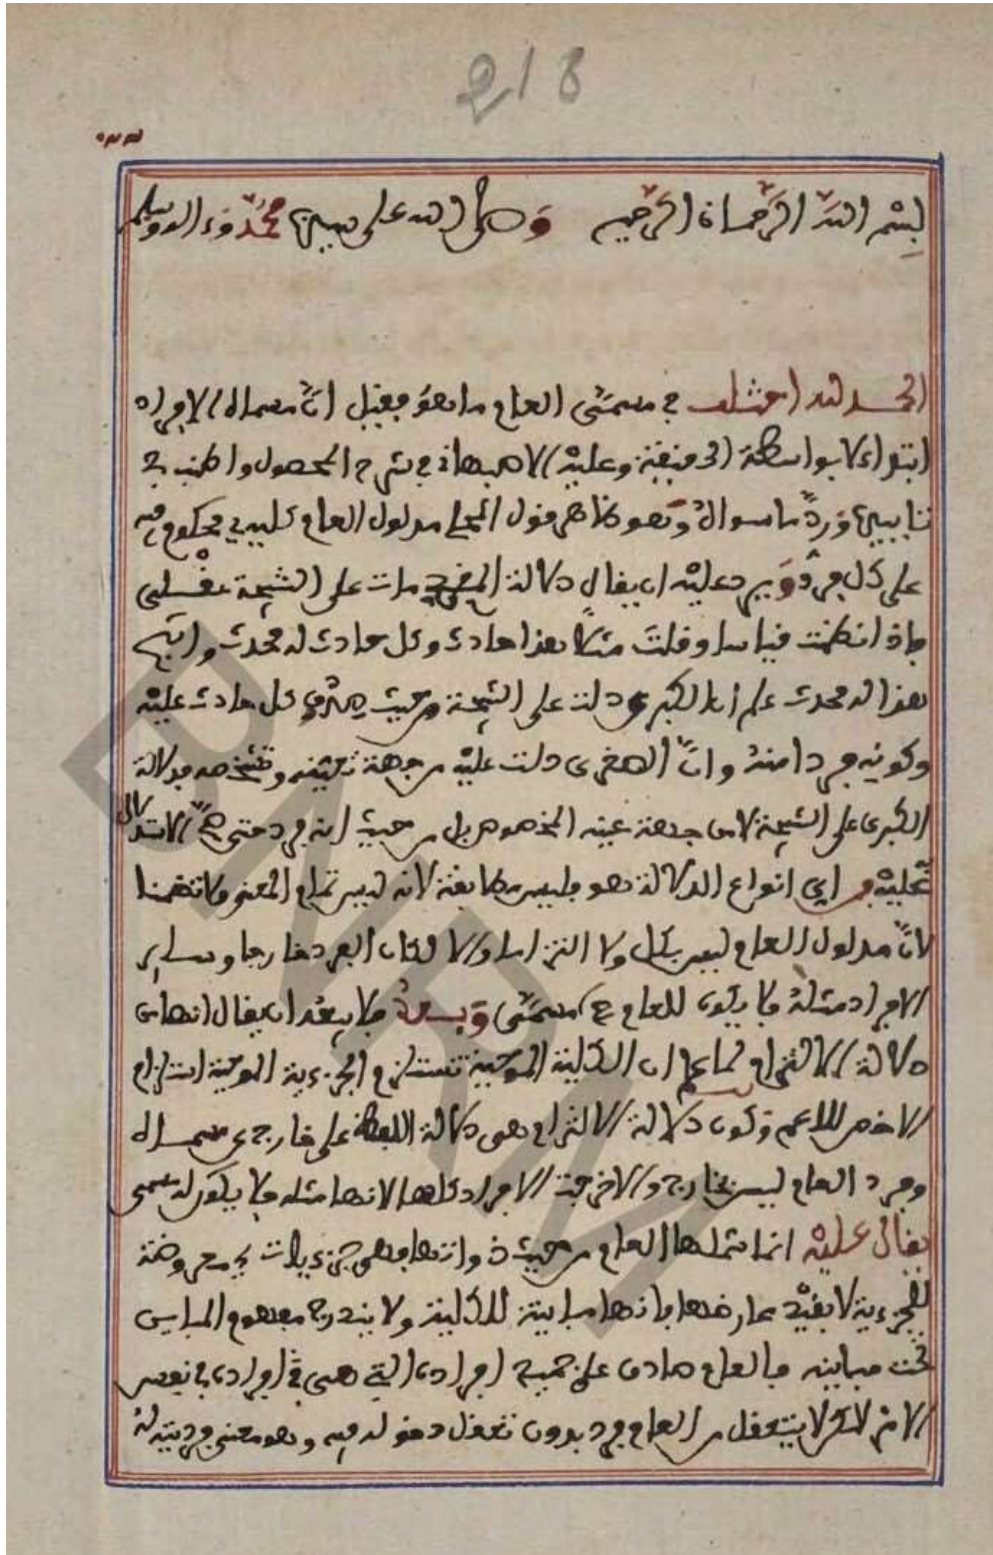 218
بسم الله الرحمان الرحيم وصلى الله على سيدنا محمد وءاله وسلم
الحمد لله اختلف في مسمى العام ما هو فقيل ان مسماه الافراد
ابتداء لا بواسطة الحقيقة وعليه الاصبهاني في شرح المحصول واطنب في
تابيده ورد ما سواه وهو ظاهر قول المحلي مدلول العام كلية اي محكوم فيه
على كل فرد ويرد عليه ان يقال دلالة المقدمات على النتيجة عقلي
فاذا نظمت قياسا وقلت مثلا هذا حادث وكل حادث له محدث وانتج
هذا له محدث علم ان الكبرى دلت على النتيجة من حيث صدق كل حادث عليه
وكونه فردا منه وان الصغرى دلت عليه من جهة تعينه وتشخصه فدلالة
الكبرى على النتيجة لا من جهة عينه المخصوص بل من حيث انه فرد حتى صح الاستدلال
عليه من اي انواع الدلالة هو فليس مطابقة لانه ليس تمام المعنى ولا تضمنا
لان مدلول العام ليس بكل ولا التزاما والا لكان الفرد خارجا وساير
الافراد مثله فلا يكون للعام مسمى وبعد فلا يبعد ان يقال انها من
دلالة الالتزام لما علم ان الكلية الموجبة تستلزم الجزءية الموجبة استلزام
الاخص للاعم وكون دلالة الالتزام هي دلالة اللفظ على خارج عن مسماه
وفرد العام ليس بخارج والا خرجت الافراد كلها لانها مثله فلا يكون له مسمى
يقال عليه انما شملها العام من حيث ذواتها فهي جزءيات معروضة
للجزءية لا بقيد عارضها فانها مباينة للكلية ولا يندرج مفهوم المباين
تحت مباينه فالعام صادق على جميع افراده التي هي افراده في نفس
الامر لاكن لا يتعقل من العام فرد بدون تعقل دخوله فيه وهو معنى فرديته له